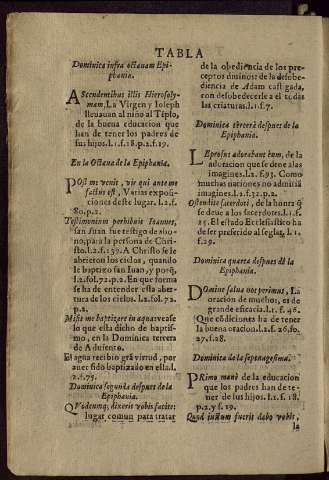 TABLA
Dominica infra octauam Epi-
phania.
AScendentibus illis Hierosoly-
mam, La Virgen y Ioseph
lleuauan al niño al Tẽplo,
de la buena educacion que
han de tener los padres de
sus hijos. l.1.f.18.p.2.f.19.
En la Octaua de la Epiphania.
POst me venit, vir qui ante me
factus est, Varias exposiciones
deste lugar. l.2.f.
80.p.2.
Testimonium perhibuit Ioannes,
san Iuan fue testigo de abo-
no, para la persona de Chri-
sto. l.2.f.159. A Christo se le
abrieron los cielos, quando
le baptizo san Iuan, y porq̃,
l.2.fol.72.p.2. En que forma
se ha de entender esta aber-
tura de los cielos. l.2.fol.72.
p.2.
lo que esta dicho de baptis-
mo, en la Dominica tercera
de Auiento.
El agua recibio grã virtud, por
auer sido baptizado en ella. l.
2.f.75.
Dominica segunda despues de la
Epiphania.
QVodcunq; dixerit vobis facite:
lugar comun para tratar
de la obediencia de los pre-
ceptos diuinos: de la desobe-
diencia de Adam castigada,
con desobedecerle a el todas
las criaturas. l.1.f.7.
Dominica tercera despues de la
Epiphania.
LEprosus adorabat eum, de la
adoracion que se deue a las
imagines. l.2.f.93. Como
muchas naciones no admitiã
imagines. l.2.f.32.p.2.
Ostende te sacerdoti, de la honra q̃
se deue a los sacerdotes. l.1.f.
25. El estado Ecclesiastico ha
de ser preferido al seglar, l.1.
f.29.
Dominica quarta despues de la
Epiphania.
DOmine salua nos perimus, La
oracion de muchos, es de
grande eficacia. l.1.f.46.
Que cõdiciones ha de tener
la buena oracion. l.2.f.26.fo.
27.f.28.
Dominica de la septuagesima.
PRimo manè de la educacion
que los padres han de te-
ner de sus hijos. l.1.f.18.
p.2.y f.19.
Quod iustum fuerit dabo vobis,
la